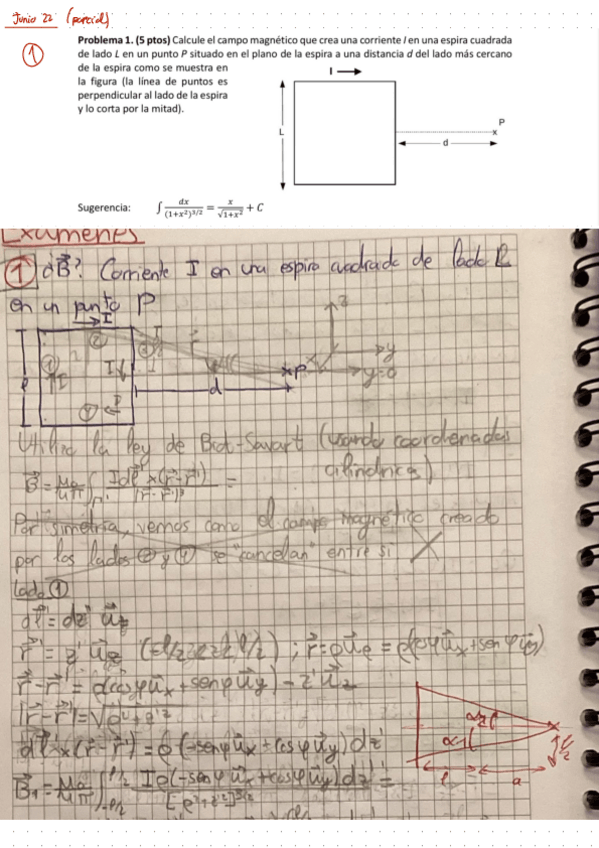 Junio 22 (parcial)
①
Problema 1. (5 ptos) Calcule el campo magnético que crea una corriente I en una espira cuadrada
de lado L en un punto P situado en el plano de la espira a una distancia d del lado más cercano
de la espira como se muestra en
la figura (la línea de puntos es
perpendicular al lado de la espira
y lo corta por la mitad).
I
L
P
x
d
Sugerencia: ∫ dx/(1+x²)^{3/2} = x/√(1+x²) + C
Exámenes
① dB⃗? Corriente I en una espira cuadrada de lado l
en un punto P
I
②
z
①
I
I
③
l
P
y
y=0
d
④
Utilizo la ley de Biot-Savart (usando coordenadas
cilíndricas)
B⃗ = μ₀/4π ∫ Idl⃗' x (r⃗-r⃗')/|r⃗-r⃗'|³ =
Por simetría, vemos como el campo magnético creado
por los lados ② y ④ se "cancelan" entre si
Lado ①
dl⃗' = dz' u⃗z
r⃗' = z' u⃗z (-l/2≤z≤l/2) ; r⃗ = ρu⃗ρ = ρ(cosφu⃗x+senφu⃗y)
r⃗-r⃗' = ρ(cosφu⃗x+senφu⃗y) - z'u⃗z
|r⃗-r⃗'| = √ρ²+z'²
dl⃗' x (r⃗-r⃗') = ρ(-senφu⃗x+cosφu⃗y)dz'
α2
α1
l/2
l
a
B⃗₁ = μ₀/4π ∫_{-l/2}^{l/2} Iρ(-senφu⃗x+cosφu⃗y)dz'/[ρ²+z'²]^{3/2} =